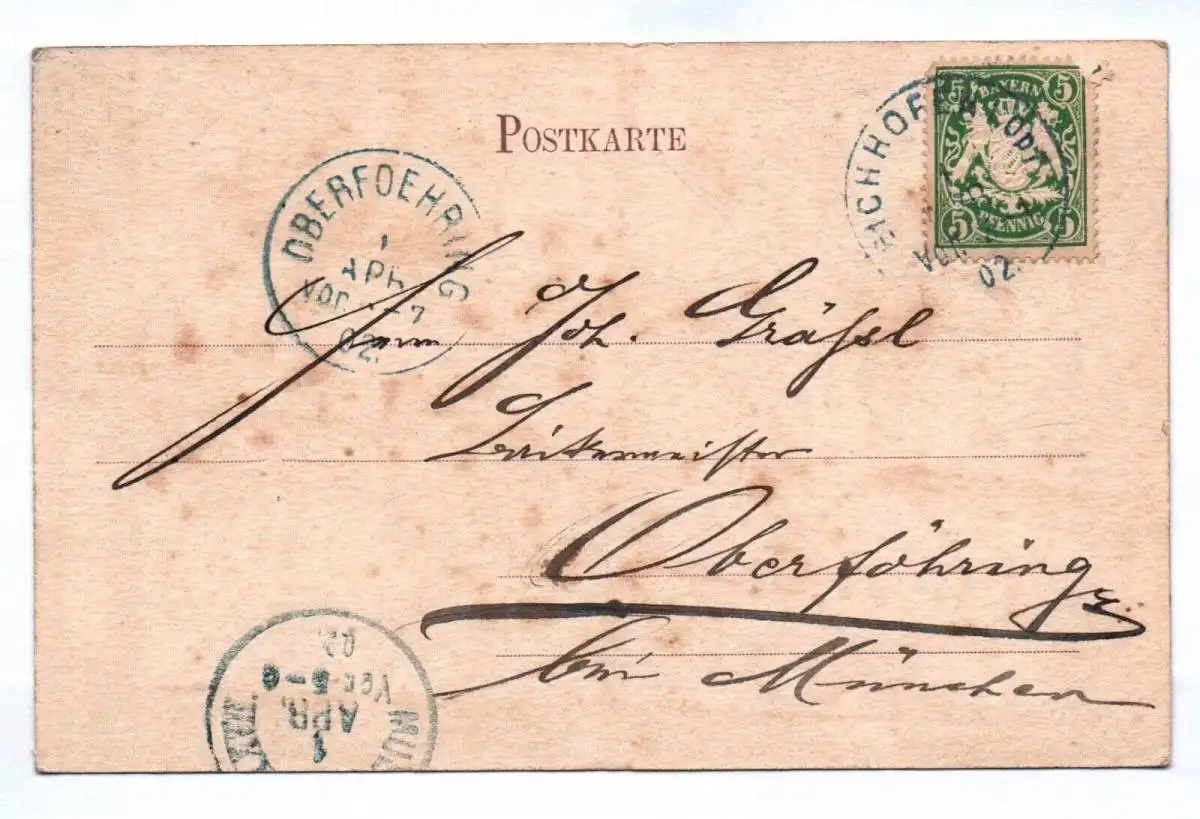 POSTKARTE
5 BAYERN 5
5 PFENNIG 5
EICHHOFEN
02.
OBERFOEHRING
1
APR
VOR 7
02.
Herrn Joh. Gräßl
Oberföhring
bei München
MÜ
1
APR.
Vor. 5-6
02